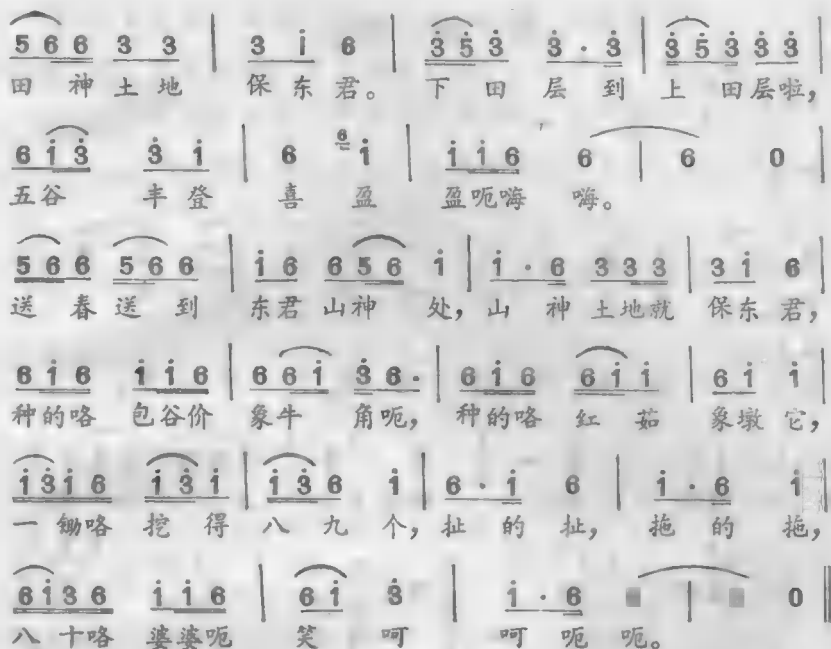 5 6 6 3 3 | 3 i 6 | 3̇ 5̇ 3̇ 3̇ · 3̇ | 3̇ 5̇ 3̇ 3̇ 3̇ |
田 神 土 地 保 东 君。 下 田 层 到 上 田 层 啦,
6 i 3̇ 3̇ i | 6 6 i | i i 6 6 | 6 0 |
五谷 丰 登 喜 盈 盈呃嗨 嗨。
5 6 6 5 6 6 | i 6 6 5 6 i | i · 6 3 3 3 | 3 i 6 |
送 春 送 到 东君 山神 处, 山 神 土地就 保东 君,
6 i 6 i i 6 | 6 6 i 3̇ 6 · | 6 i 6 6 i i | 6 i i |
种的咯 包谷价 象牛 角呃, 种的咯 红 茹 象墩 它,
i 3̇ i 6 i 3̇ i | i 3̇ 6 i | 6 · i 6 | i · 6 i |
一 锄咯 挖 得 八 九 个, 扯 的 扯, 拖 的 拖,
6 i 3 6 i i 6 | 6 i 3̇ | i · 6 | 0 ‖
八 十咯 婆婆呃 笑 呵 呵 呃 呃。